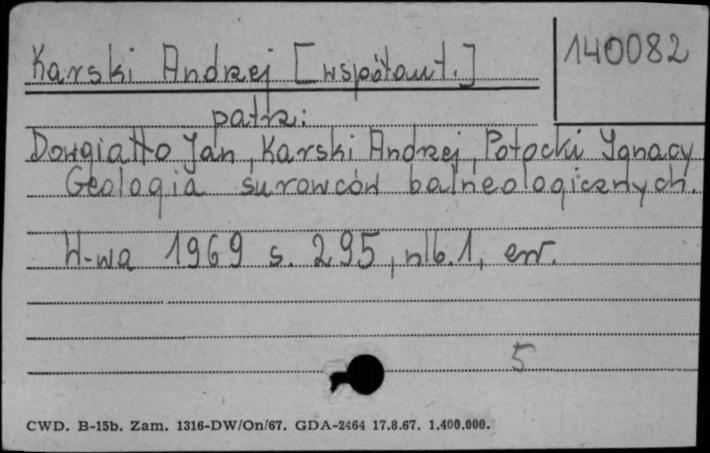 Karski Andrzej [współaut.]
140082
patrz:
Dowgiałło Jan, Karski Andrzej, Potocki Ignacy
Geologia surowców balneologicznych.
W-wa 1969 s. 295, nlb. 1, err.
5
CWD. B-15b. Zam. 1316-DW/On/67. GDA-2464 17.8.67. 1.400.000.